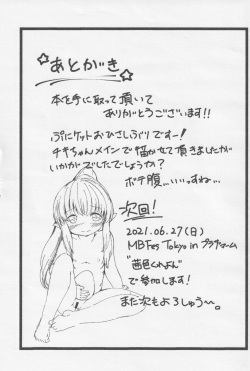 ☆あとがき☆
本を手に取って頂いて
ありがとうございます!!
ぷにケットおひさしぶりですー!
チキちゃんメインで描かせて頂きましたが
いかがでしたでしょうか?
ボテ腹...いいっすね...
次回!
2021.06.27(日)
MBFes Tokyo in プラザマーム
"茜色くれよん"
で参加します!
また次もよろしゅう〜。